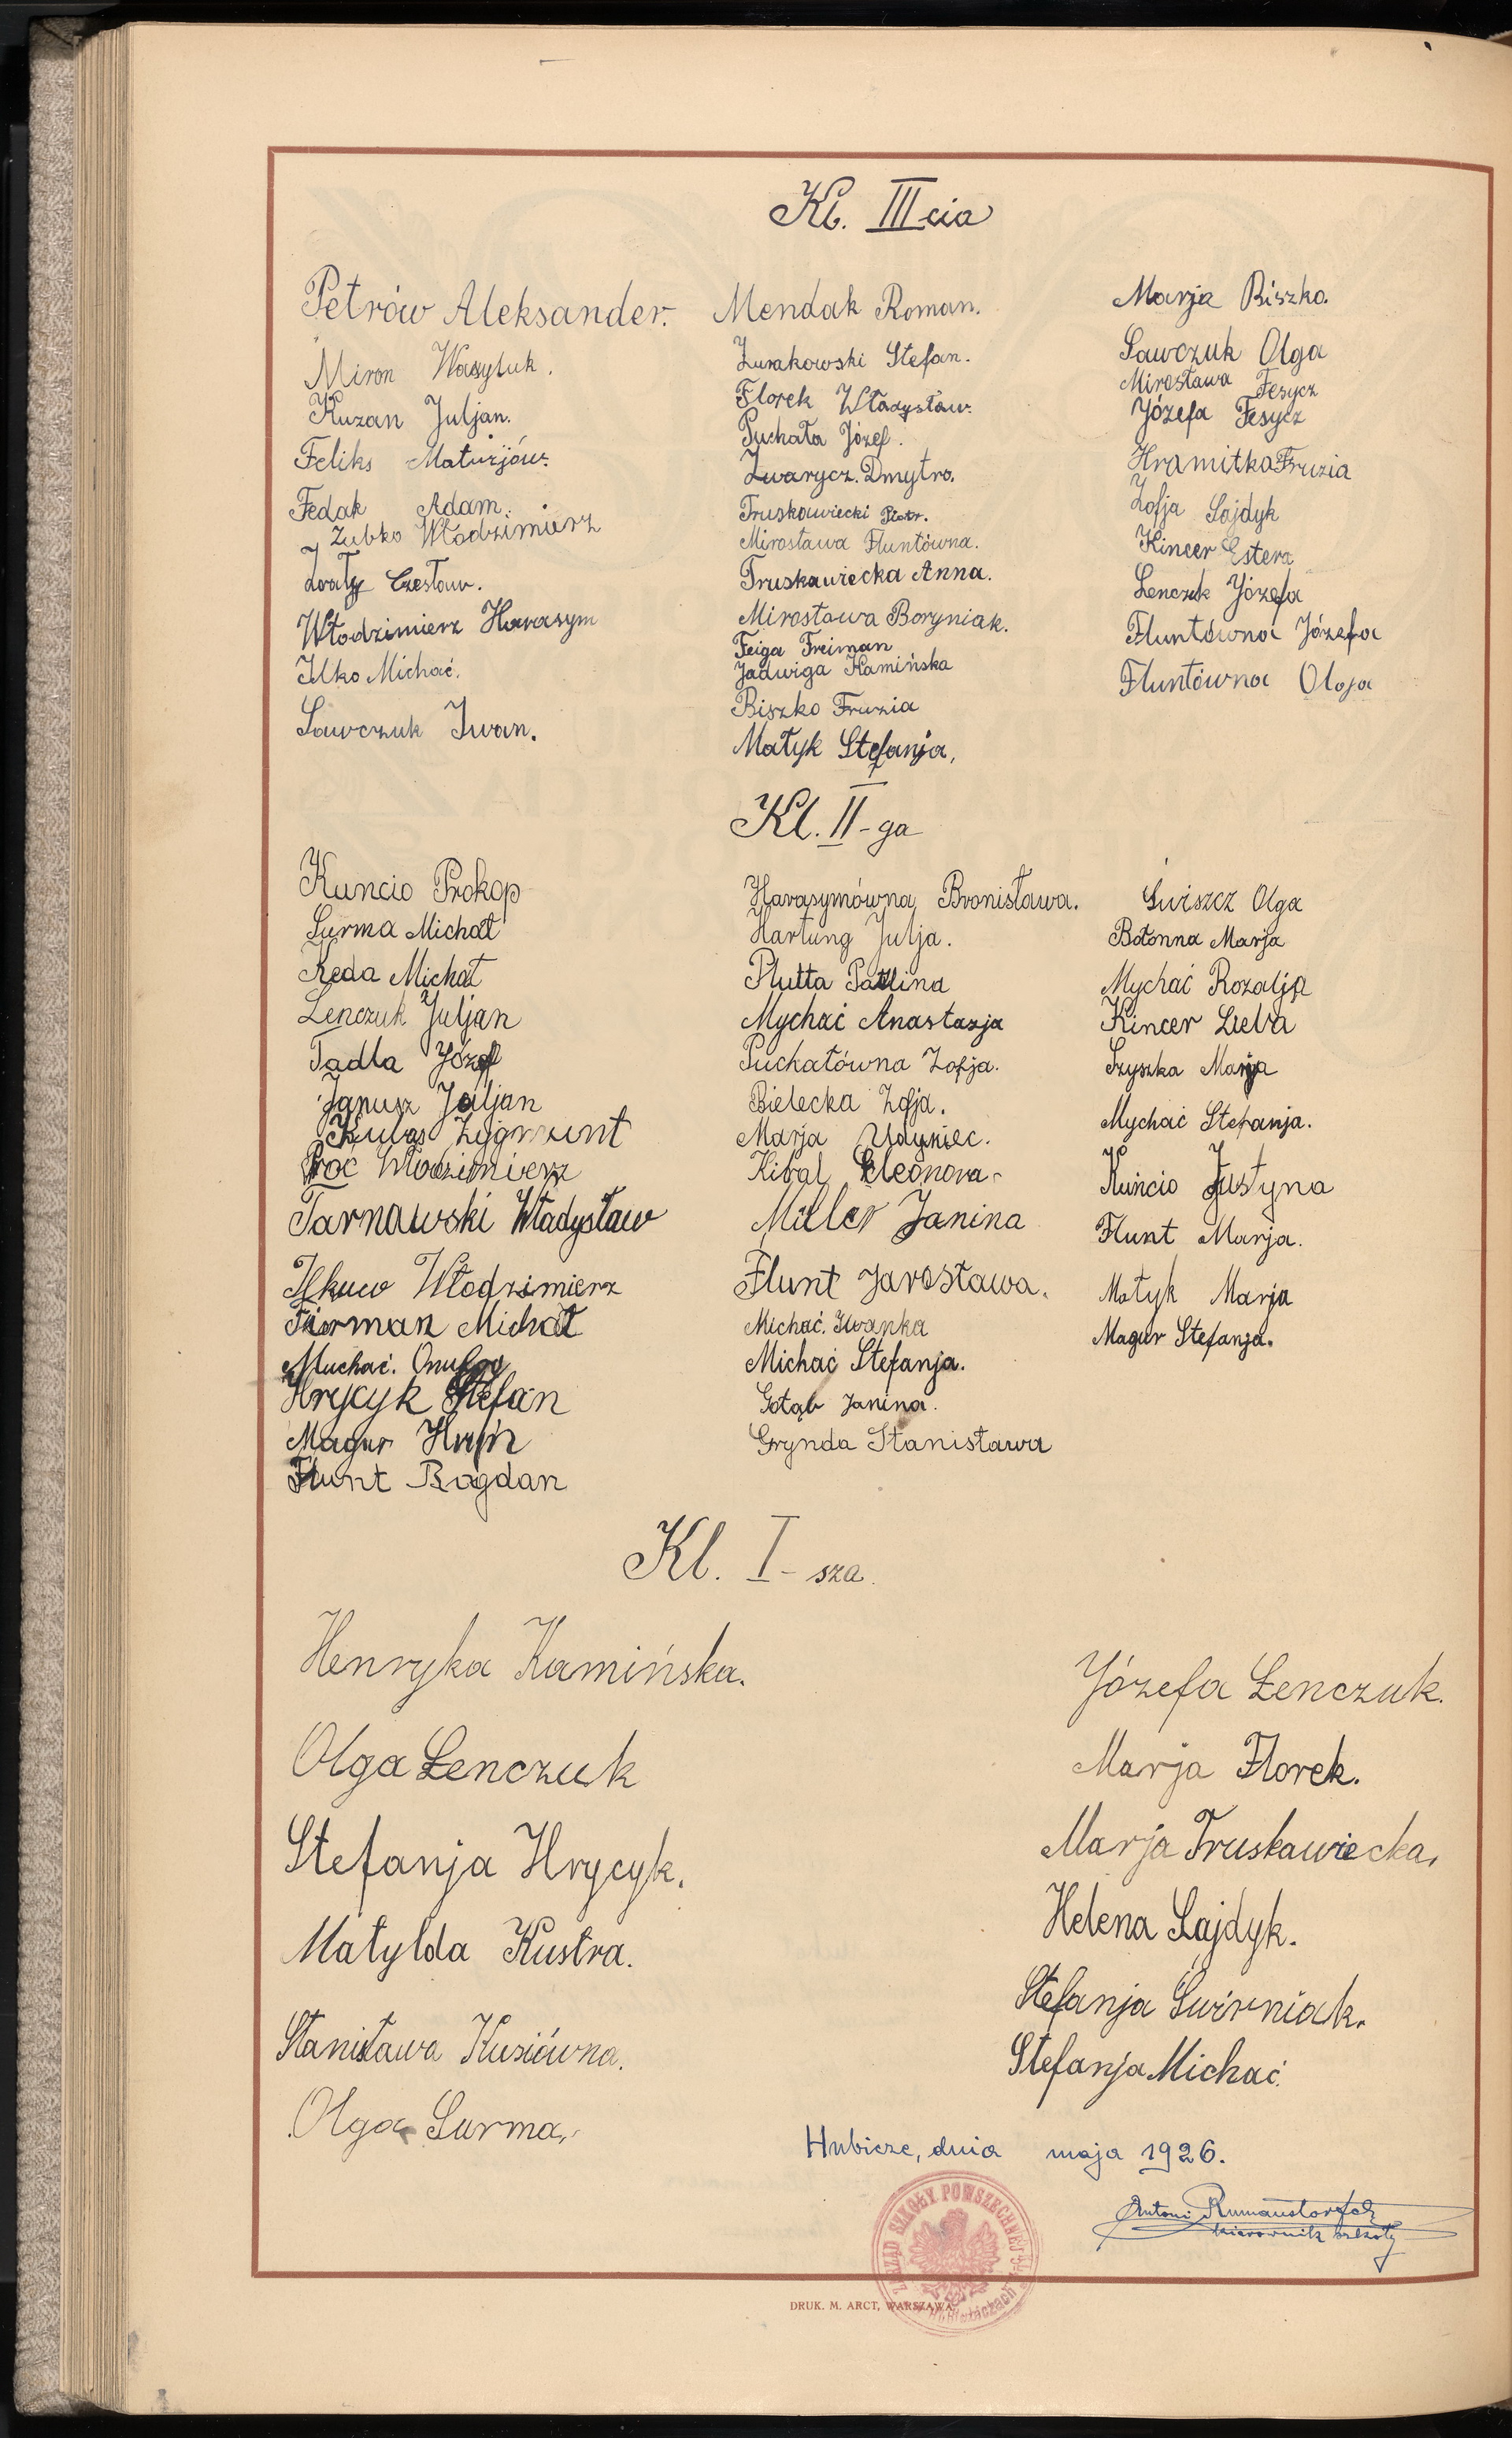 Kl. III cia
Petrów Aleksander.
Miron Wasyluk.
Kuzan Juljan.
Feliks Maturijów.
Fedak Adam.
Zubko Włodzimierz
Czesław.
Włodzimierz Harasym
Ilko Michać.
Sawczuk Iwan.
Mendak Roman.
Żurakowski Stefan.
Florek Władysław.
Puchała Józef.
Zwarycz. Dmytro.
Truskawiecki Piotr.
Mirosława Fluntówna.
Truskawiecka Anna.
Mirosława Boryniak.
Feiga Freiman
Jadwiga Kamińska
Biszko Fruzia
Matyk Stefanja,
Marja Biszko.
Sawczuk Olga
Mirosława Fesycz
Józefa Fesycz
Hramitka Fruzia
Zofja Łajdyk
Kincer Estera
Łenczuk Józefa
Fluntówna Józefa
Fluntówna Olga
Kl. II-ga
Kuncio Prokop
Surma Michał
Keda Michał
Łenczuk Juljan
Tadla Józef
Janusz Juljan
Kulas Zygmunt
Proć Włodzimierz
Tarnawski Władysław
Ilkuw Włodzimierz
Michał
Muchać.
Hrycyk Stefan
Magur Hryń
Flunt Bogdan
Harasymówna Bronisława.
Hartung Julja.
Plutta Paulina
Mychać Anastazja
Puchałówna Zofja.
Bielecka Zofja.
Marja
Kibal Eleonora
Miller Janina
Flunt Jarosława.
Michać. Iwanka
Michać Stefanja.
Gołąb Janina.
Grynda Stanisława
Świszcz Olga
Botonna Marja
Mychać Rozalja
Kincer Lieba
Szyszka Marja
Mychać Stefanja.
Kuncio Justyna
Flunt Marja.
Matyk Marja
Magur Stefanja.
Kl. I-sza.
Henryka Kamińska.
Olga Łenczuk
Stefanja Hrycyk.
Matylda Kustra.
Stanisława Kusiówna.
Olga Surma,
Józefa Łenczuk.
Marja Florek.
Marja Truskawiecka,
Helena Łajdyk.
Stefanja Świrniak.
Stefanja Michać.
Hubicze, dnia maja 1926.
Antoni
kierownik szkoły
ZARZĄD SZKOŁY POWSZECHNEJ
DRUK. M. ARCT, WARSZAWA